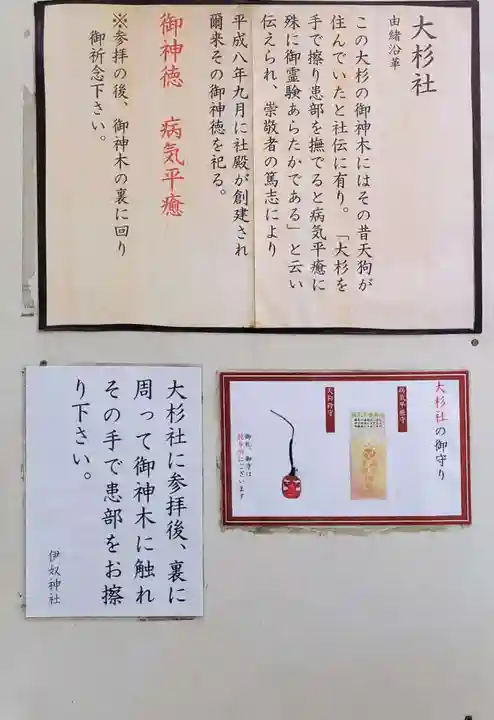 大杉社
由緒沿革
この大杉の御神木にはその昔天狗が
住んでいたと社伝に有り。「大杉を
手で擦り患部を撫でると病気平癒に
殊に御霊験あらたかである」と云い
伝えられ、崇敬者の篤志により
平成八年九月に社殿が創建され
爾来その御神徳を祀る。
御神徳 病気平癒
※参拝の後、御神木の裏に回り
御祈念下さい。
大杉社の御守り
病気平癒守
天狗鈴守
御札、御守は
にございます
大杉社に参拝後、裏に
周って御神木に触れ
その手で患部をお擦
り下さい。
伊奴神社